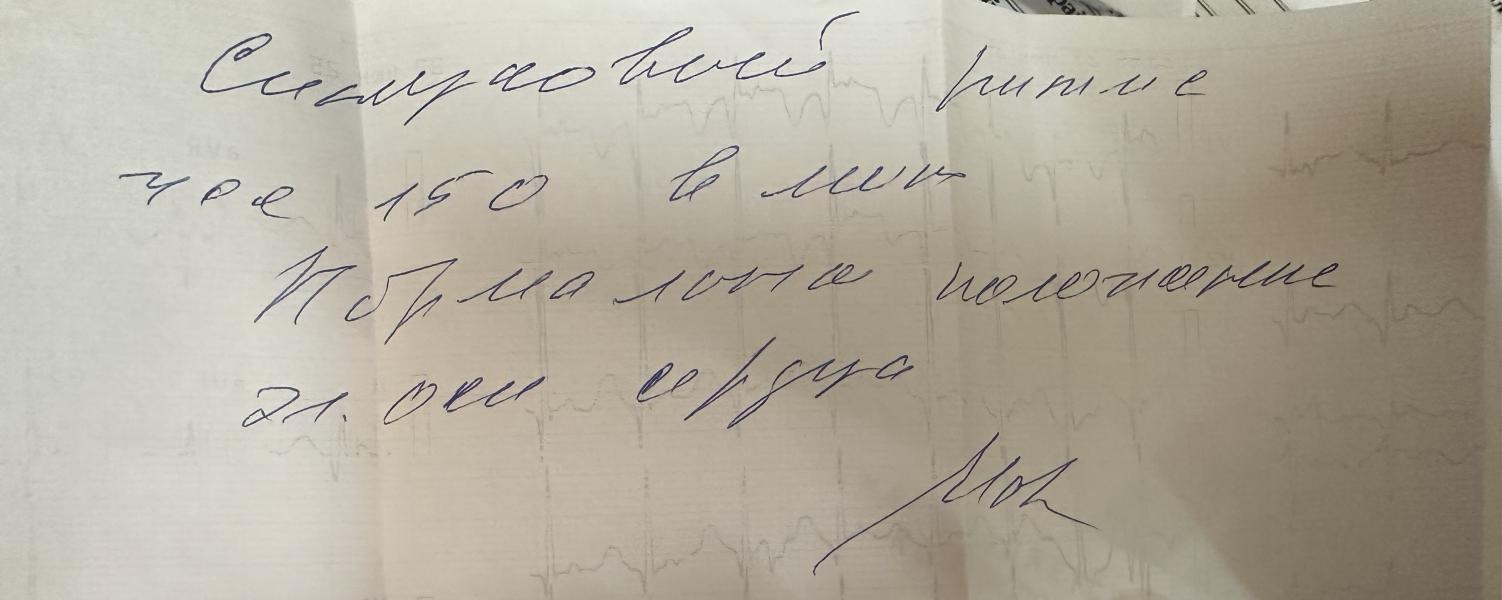 Синусовый ритм с
чсс 150 в мин
Нормальное положение
эл. оси сердца